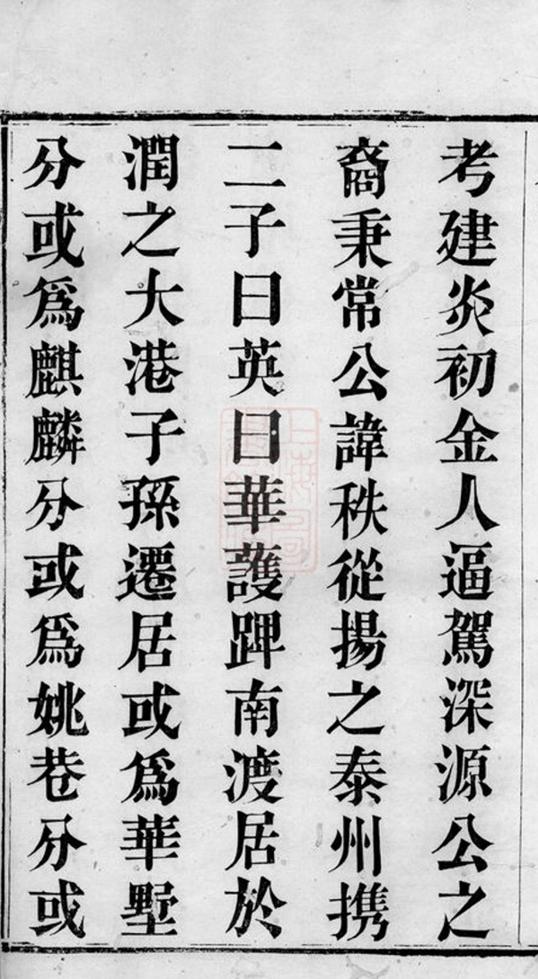 考建炎初金人逼駕深源公之
裔秉常公諱秩從揚之泰州携
二子曰英曰華護蹕南渡居於
潤之大港子孫遷居或爲華墅
分或爲麒麟分或爲姚巷分或